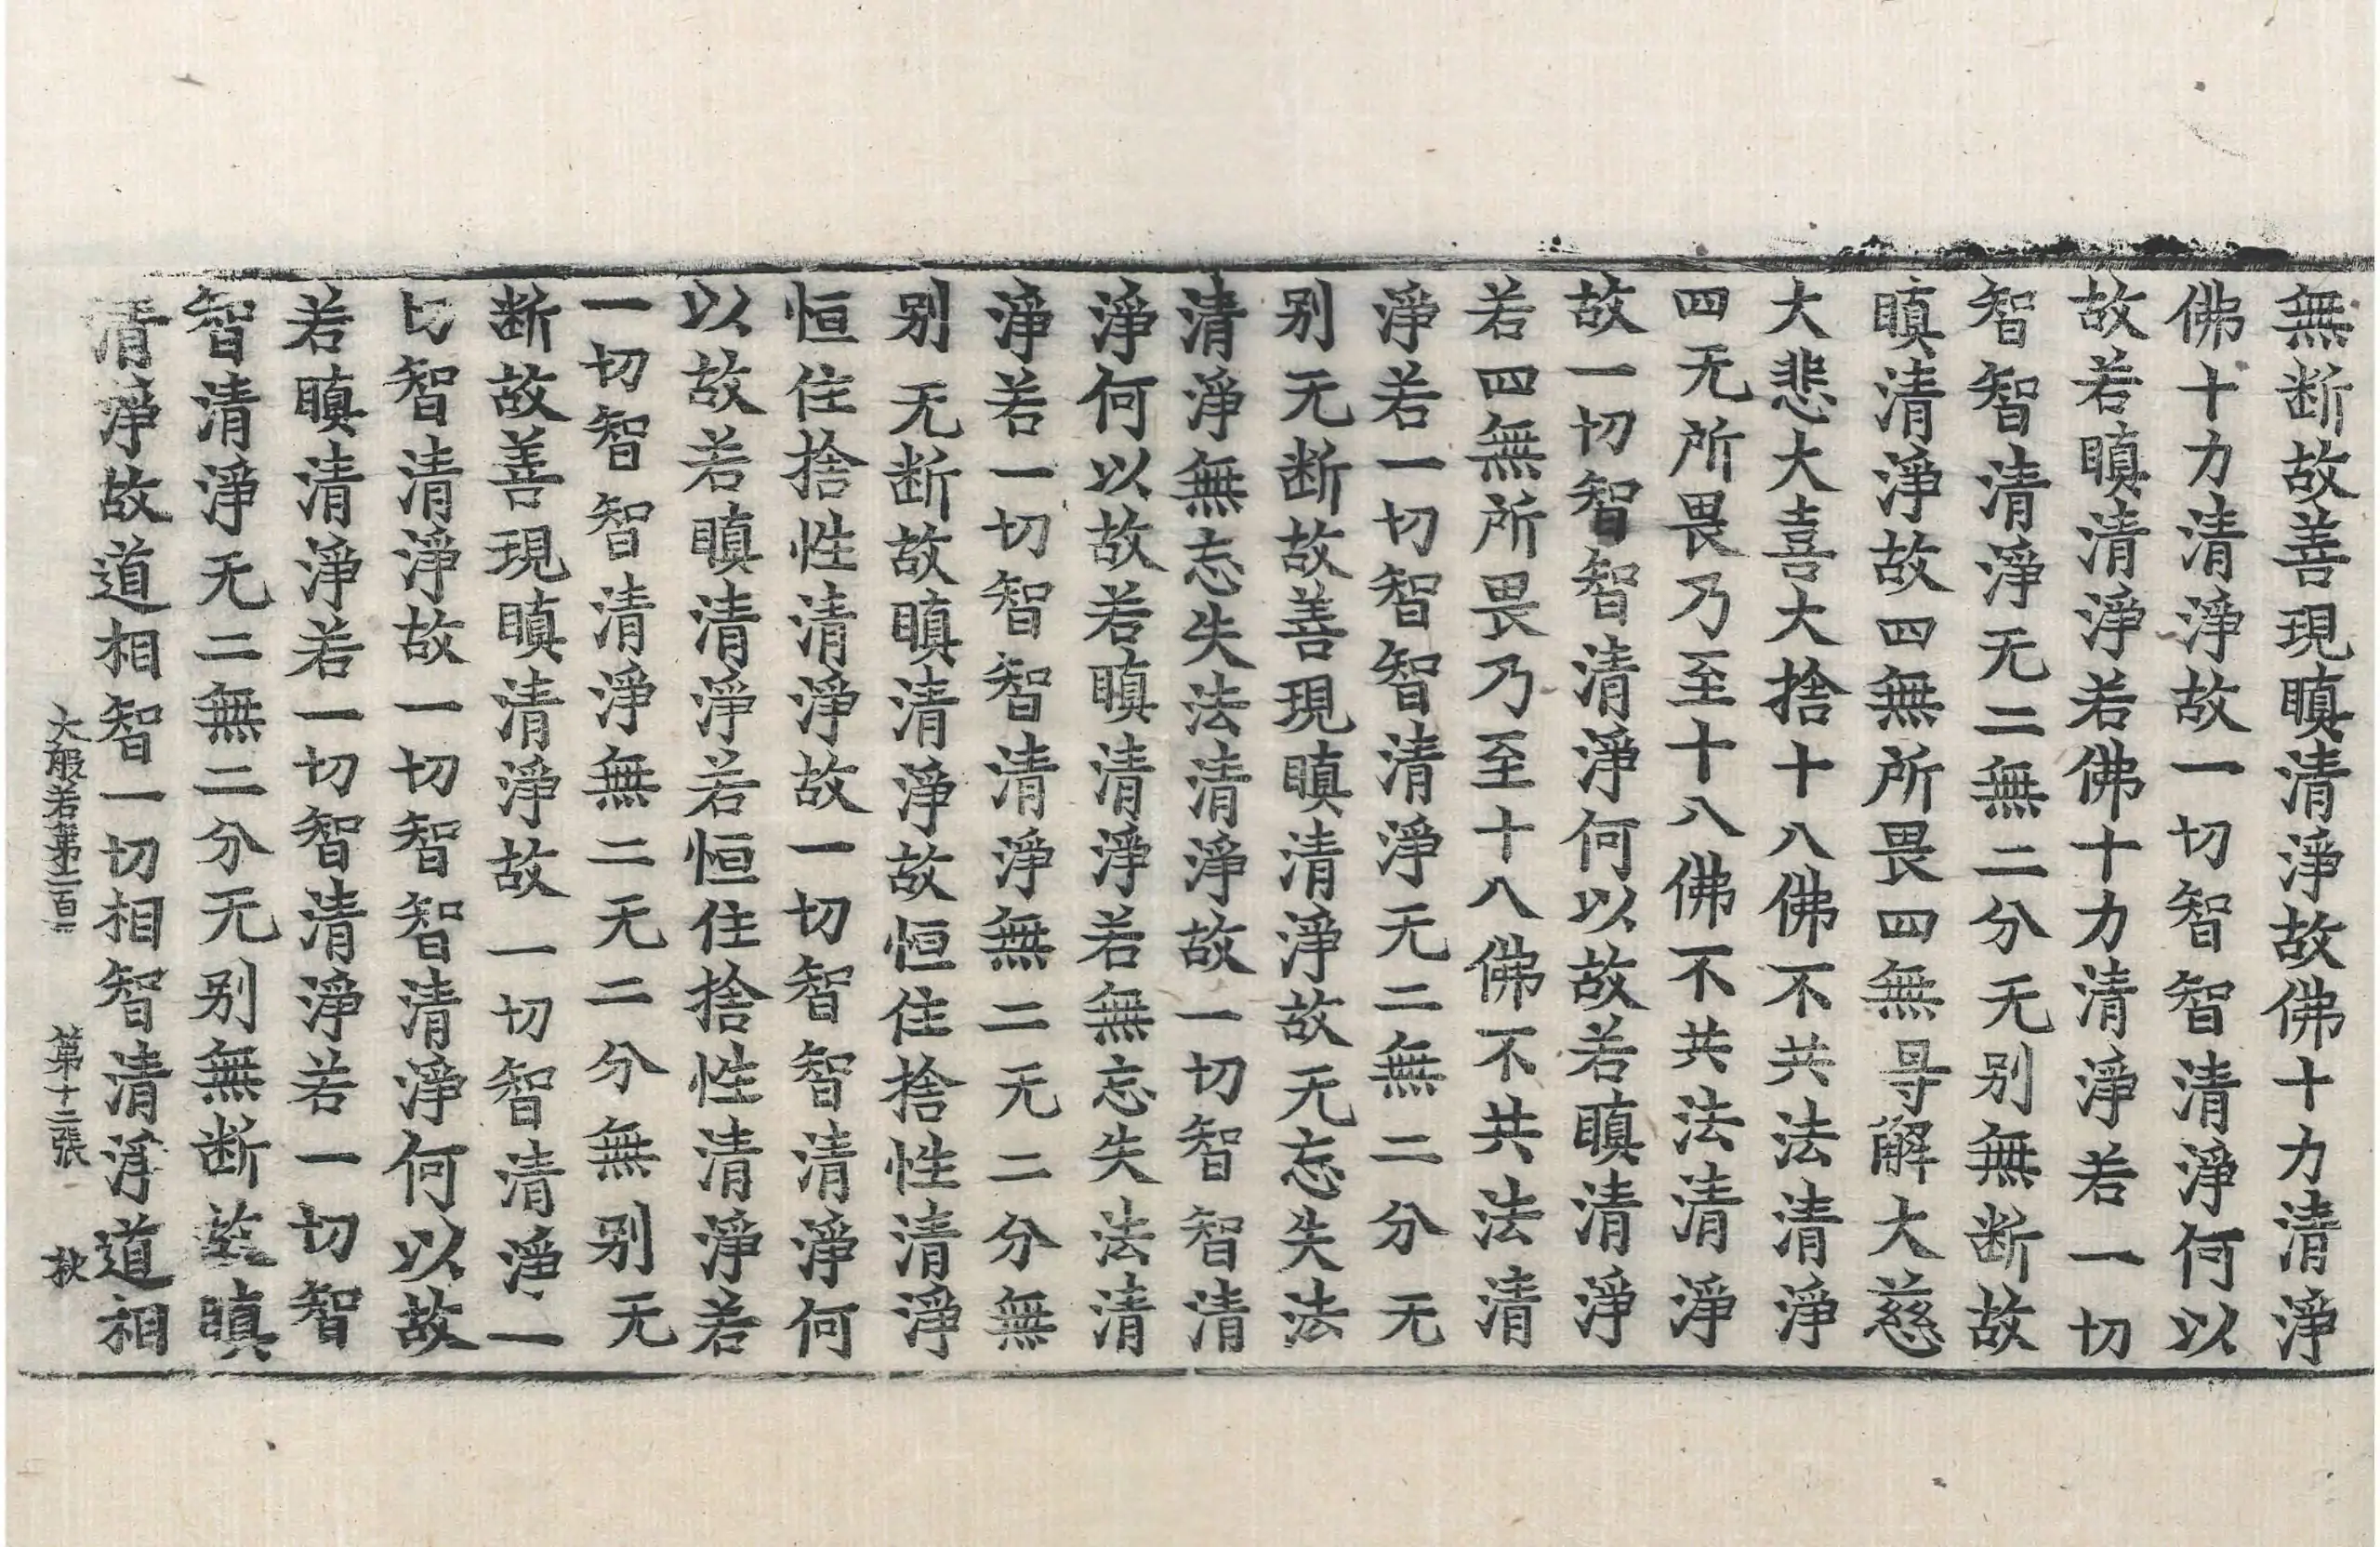 無断故善現瞋清淨故佛十力清淨
佛十力清淨故一切智智清淨何以
故若瞋清淨若佛十力清淨若一切
智智清淨无二無二分无别無断故
瞋清淨故四無所畏四無㝵解大慈
大悲大喜大捨十八佛不共法清淨
四无所畏乃至十八佛不共法清淨
故一切智智清淨何以故若瞋清淨
若四無所畏乃至十八佛不共法清
淨若一切智智清淨无二無二分无
别无断故善現瞋清淨故无忘失法
清淨無忘失法清淨故一切智智清
淨何以故若瞋清淨若無忘失法清
淨若一切智智清淨無二无二分無
别无断故瞋清淨故恒住捨性清淨
恒住捨性清淨故一切智智清淨何
以故若瞋清淨若恒住捨性清淨若
一切智智清淨無二无二分無别无
断故善現瞋清淨故一切智清淨一
切智清淨故一切智智清淨何以故
若瞋清淨若一切智清淨若一切智
智清淨无二無二分无别無断故瞋
清淨故道相智一切相智清淨道相
大般若第二百 第十二張 秋